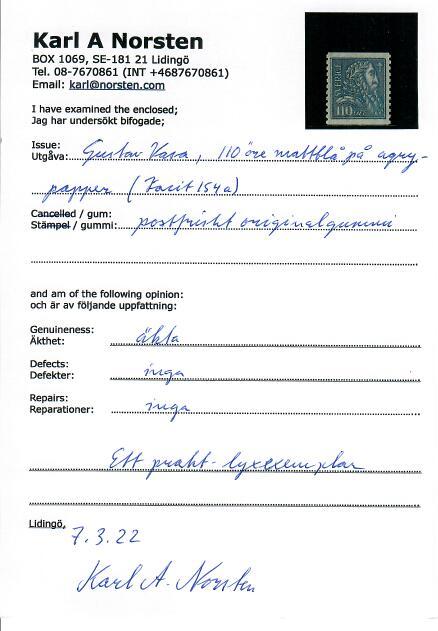 Karl A Norsten
BOX 1069, SE-181 21 Lidingö
Tel. 08-7670861 (INT +4687670861)
Email: karl@norsten.com
SVERIGE
110 ÖRE
I have examined the enclosed;
Jag har undersökt bifogade;
Issue:
Utgåva: Gustav Vasa, 110 öre mattblå på agry-
papper (Facit 154a)
Cancelled / gum:
Stämpel / gummi: postfriskt originalgummi
and am of the following opinion:
och är av följande uppfattning:
Genuineness:
Äkthet: äkta
Defects:
Defekter: inga
Repairs:
Reparationer: inga
Ett prakt-lyxexemplar
Lidingö, 7.3.22
Karl A. Norsten